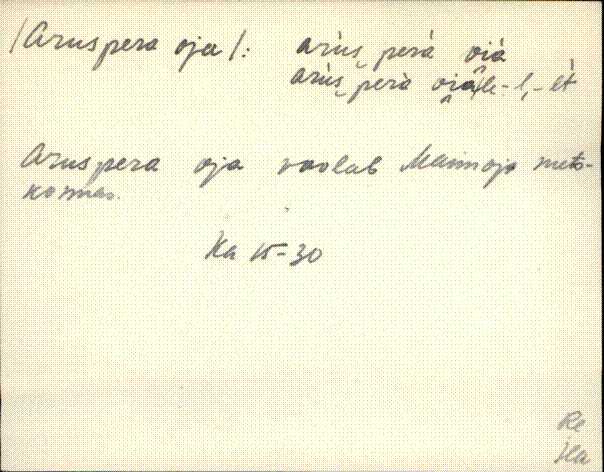 /Aruspera oja/: arùs̮ perà oi̯à
arùs̮ pèrà oi̯à/le -l, -lt
Aruspera oja voolab Mannoja mets-
konnas.
Ka 15-30
Re
Ha